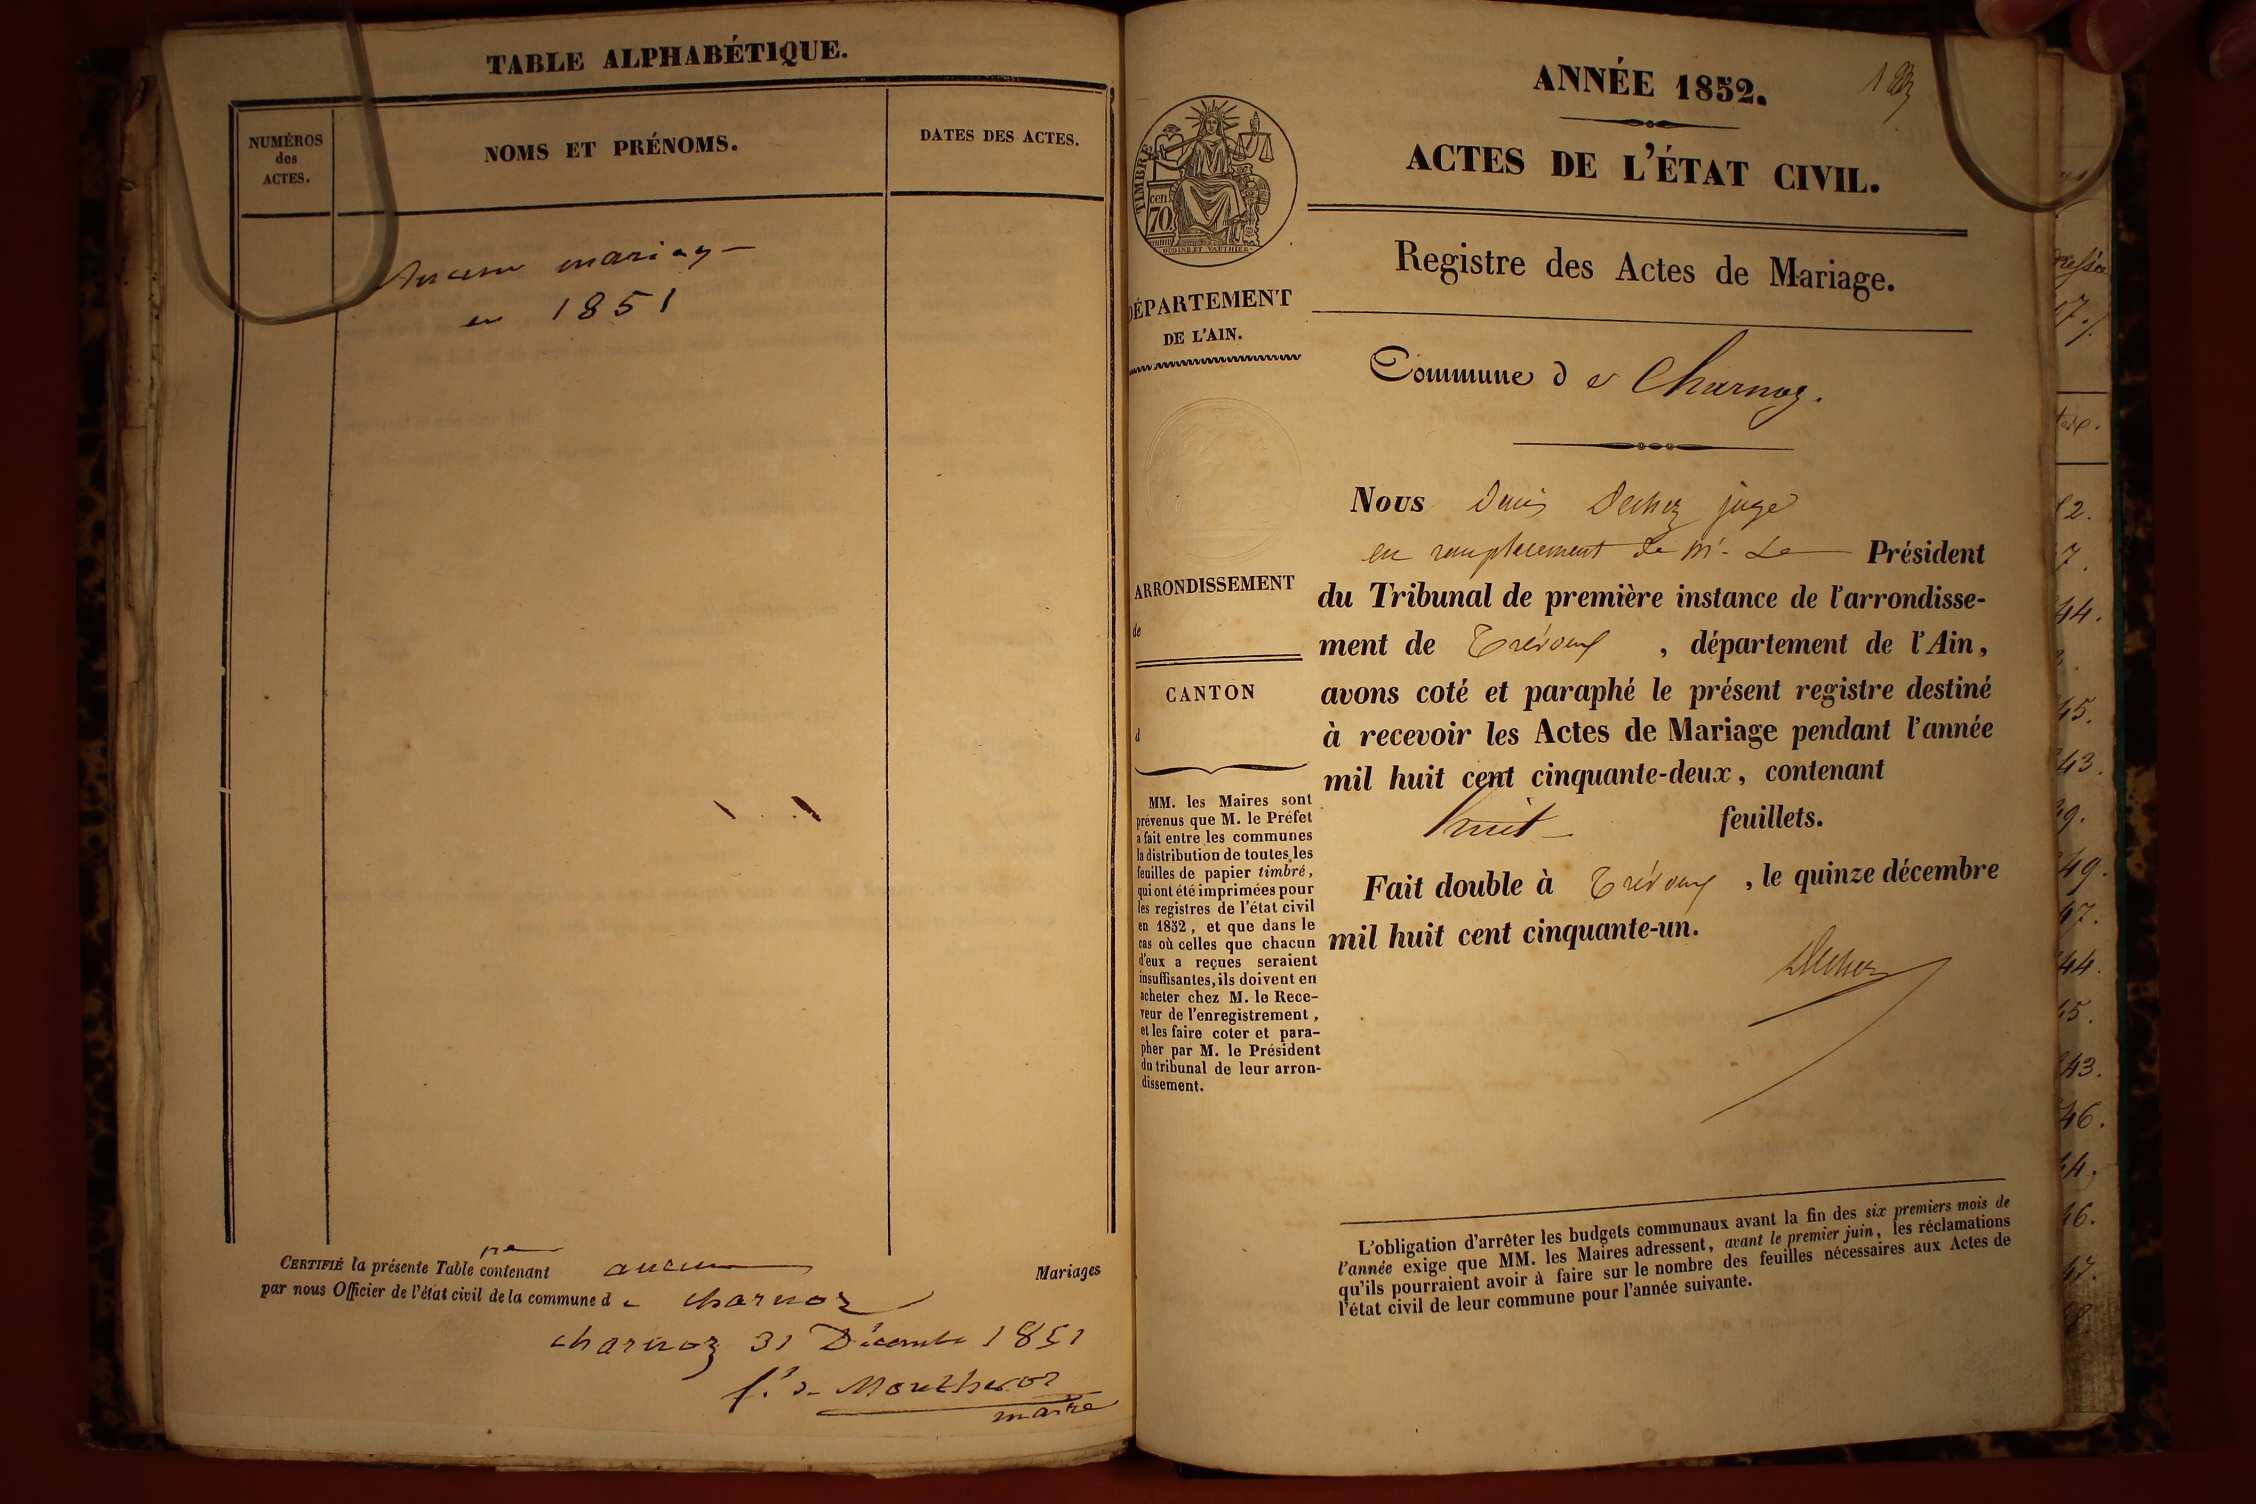 TABLE ALPHABÉTIQUE.
NUMÉROS
des
ACTES.
NOMS ET PRÉNOMS.
DATES DES ACTES.
Aucun mariage
en 1851
CERTIFIÉ la présente Table contenant aucun Mariages
par nous Officier de l'état civil de la commune de charnoz
charnoz 31 Décembre 1851
maire
ANNÉE 1852.
ACTES DE L'ÉTAT CIVIL.
TIMBRE
70 cen.
DÉPARTEMENT
DE L'AIN.
Registre des Actes de Mariage.
Commune de Charnoz.
ARRONDISSEMENT
de
CANTON
d
MM. les Maires sont
prévenus que M. le Préfet
a fait entre les communes
la distribution de toutes les
feuilles de papier timbré,
qui ont été imprimées pour
les registres de l'état civil
en 1852, et que dans le
cas où celles que chacun
d'eux a reçues seraient
insuffisantes, ils doivent en
acheter chez M. le Rece-
veur de l'enregistrement,
et les faire coter et para-
pher par M. le Président
du tribunal de leur arron-
dissement.
Nous Denis Dechez juge
en remplacement de Mr. Le Président
du Tribunal de première instance de l'arrondisse-
ment de Trévoux, département de l'Ain,
avons coté et paraphé le présent registre destiné
à recevoir les Actes de Mariage pendant l'année
mil huit cent cinquante-deux, contenant
huit feuillets.
Fait double à Trévoux, le quinze décembre
mil huit cent cinquante-un.
Dechez
L'obligation d'arrêter les budgets communaux avant la fin des six premiers mois de
l'année exige que MM. les Maires adressent, avant le premier juin, les réclamations
qu'ils pourraient avoir à faire sur le nombre des feuilles nécessaires aux Actes de
l'état civil de leur commune pour l'année suivante.